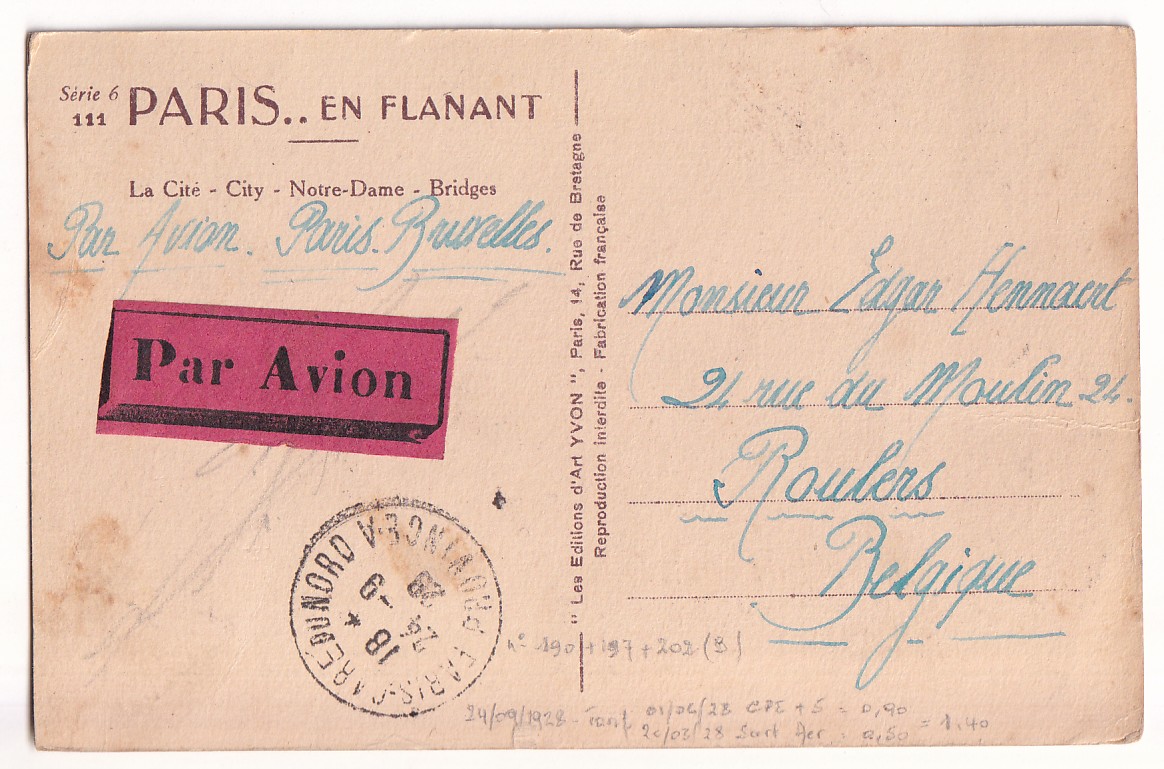 Série 6
111 PARIS.. EN FLANANT
La Cité - City - Notre-Dame - Bridges
Par Avion. Paris. Bruxelles.
Par Avion
PARIS-GARE DU NORD PROVINCE-A
18 *
24 - 9
28
" Les Editions d'Art YVON ", Paris, 14, Rue de Bretagne
Reproduction interdite - Fabrication française
Monsieur Edgar Hennaert
24 rue du Moulin 24.
Roulers
Belgique
n° 190 + 197 + 202 (B)
24/09/1928 - Tarif 01/06/28 CPE + 5 = 0,90
20/03/28 Surt Aer. 0,50 = 1.40